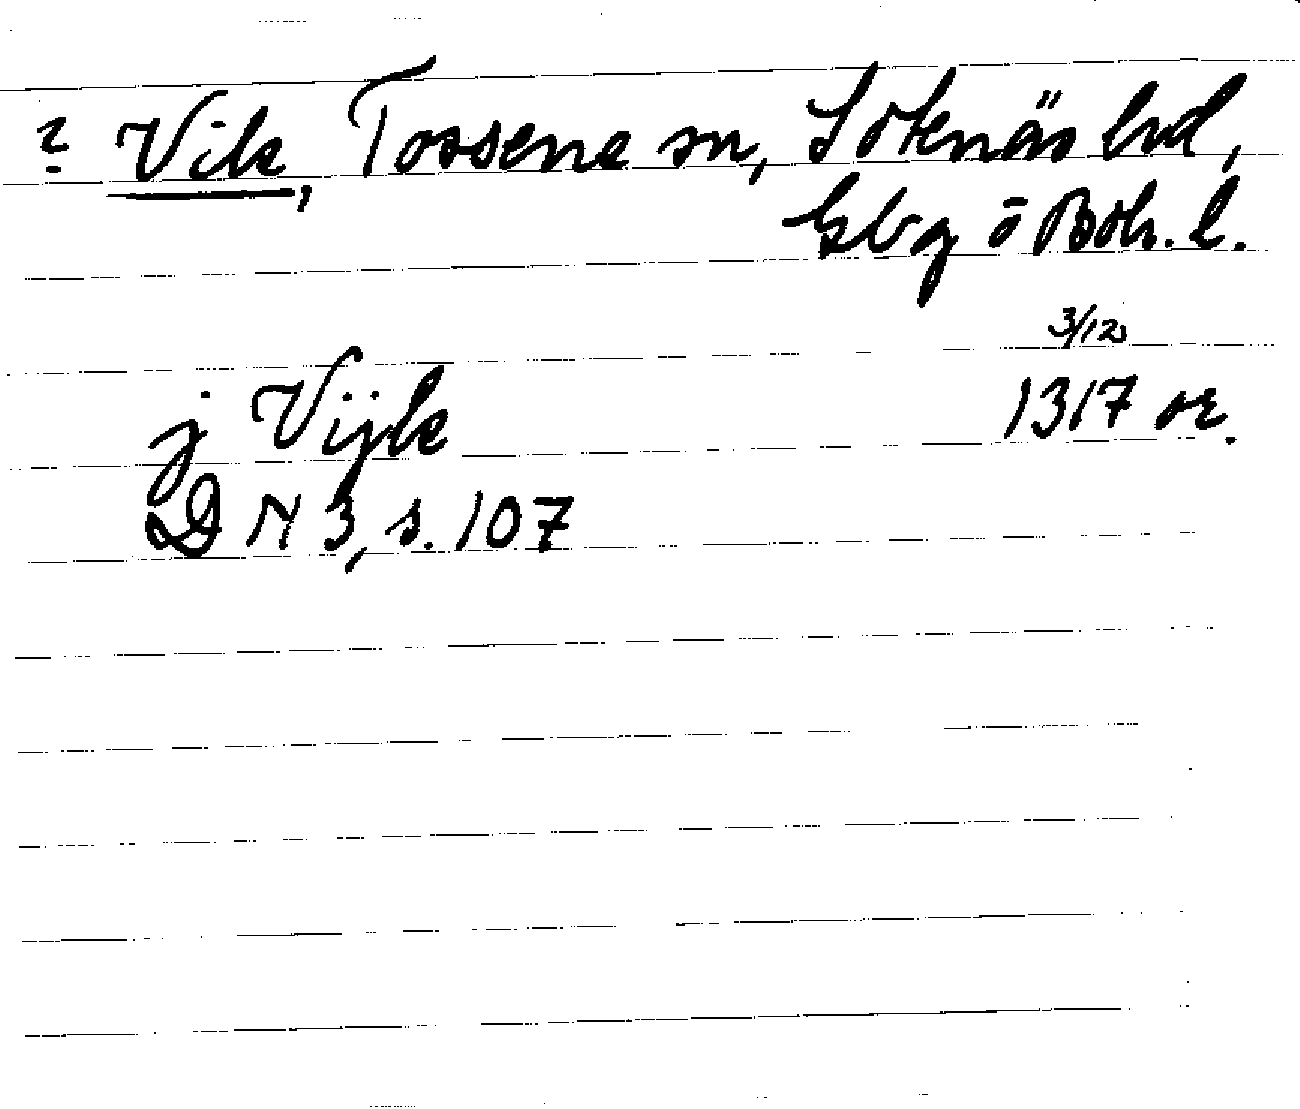 ? Vik, Tossene sn, Sotenäs hd,
Gbg o Boh. l.
3/12
j Vijk 1317 or.
DN 3, s. 107